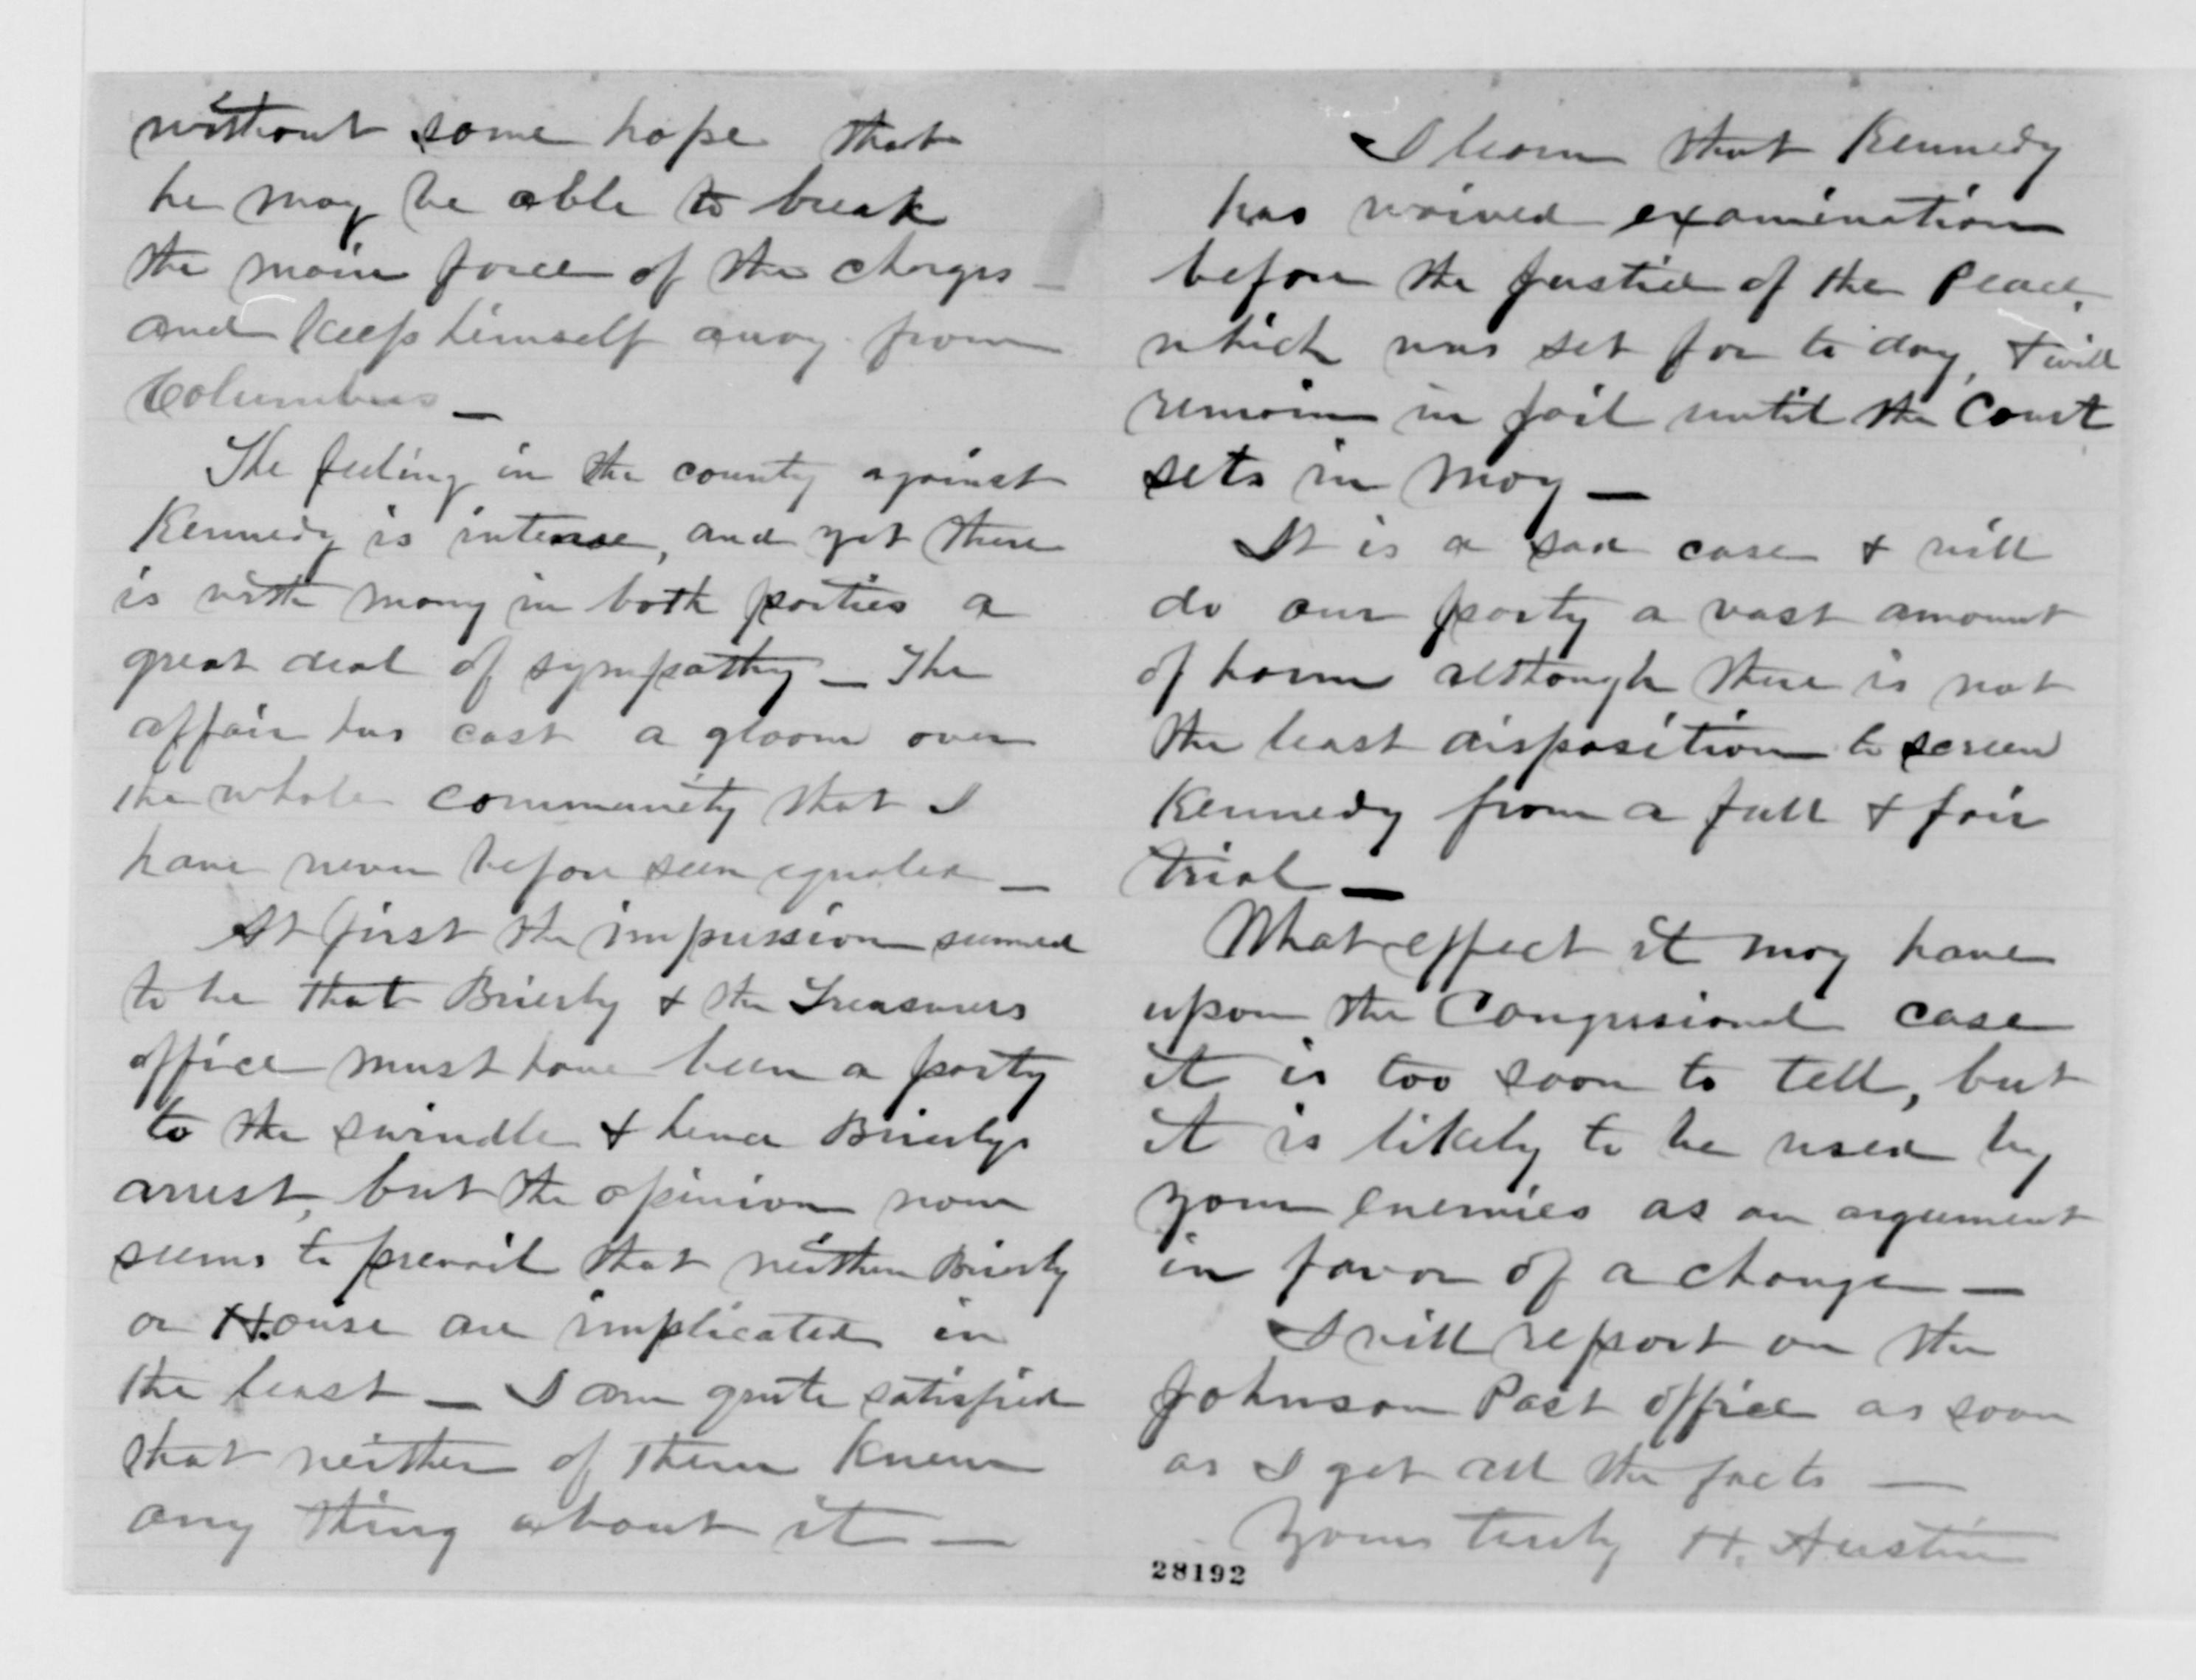 without some hope that
he may be able to break
the main force of the charges
and keep himself away from
Columbus —
The feeling in the county against
Kennedy is intense, and yet there
is with many in both parties a
great deal of sympathy — The
affair has cast a gloom over
the whole community that I
have never before seen equaled —
At first the impression seemed
to be that Brierly & the Treasurers
office must have been a party
to the swindle & hence Brierlys
arrest, but the opinion now
seems to prevail that neither Brierly
or House are implicated in
the least — I am quite satisfied
that neither of them knew
any thing about it —
I learn that Kennedy
has waived examination
before the Justice of the Peace,
which was set for to day, & will
remain in jail until the Court
sets in May —
It is a sad case & will
do our party a vast amount
of harm although there is not
the least disposition to screen
Kennedy from a full & fair
trial —
What effect it may have
upon the Congressional case
it is too soon to tell, but
it is likely to be used by
your enemies as an argument
in favor of a change —
I will report on the
Johnson Post office as soon
as I get all the facts —
Yours truly H. Austin
28192